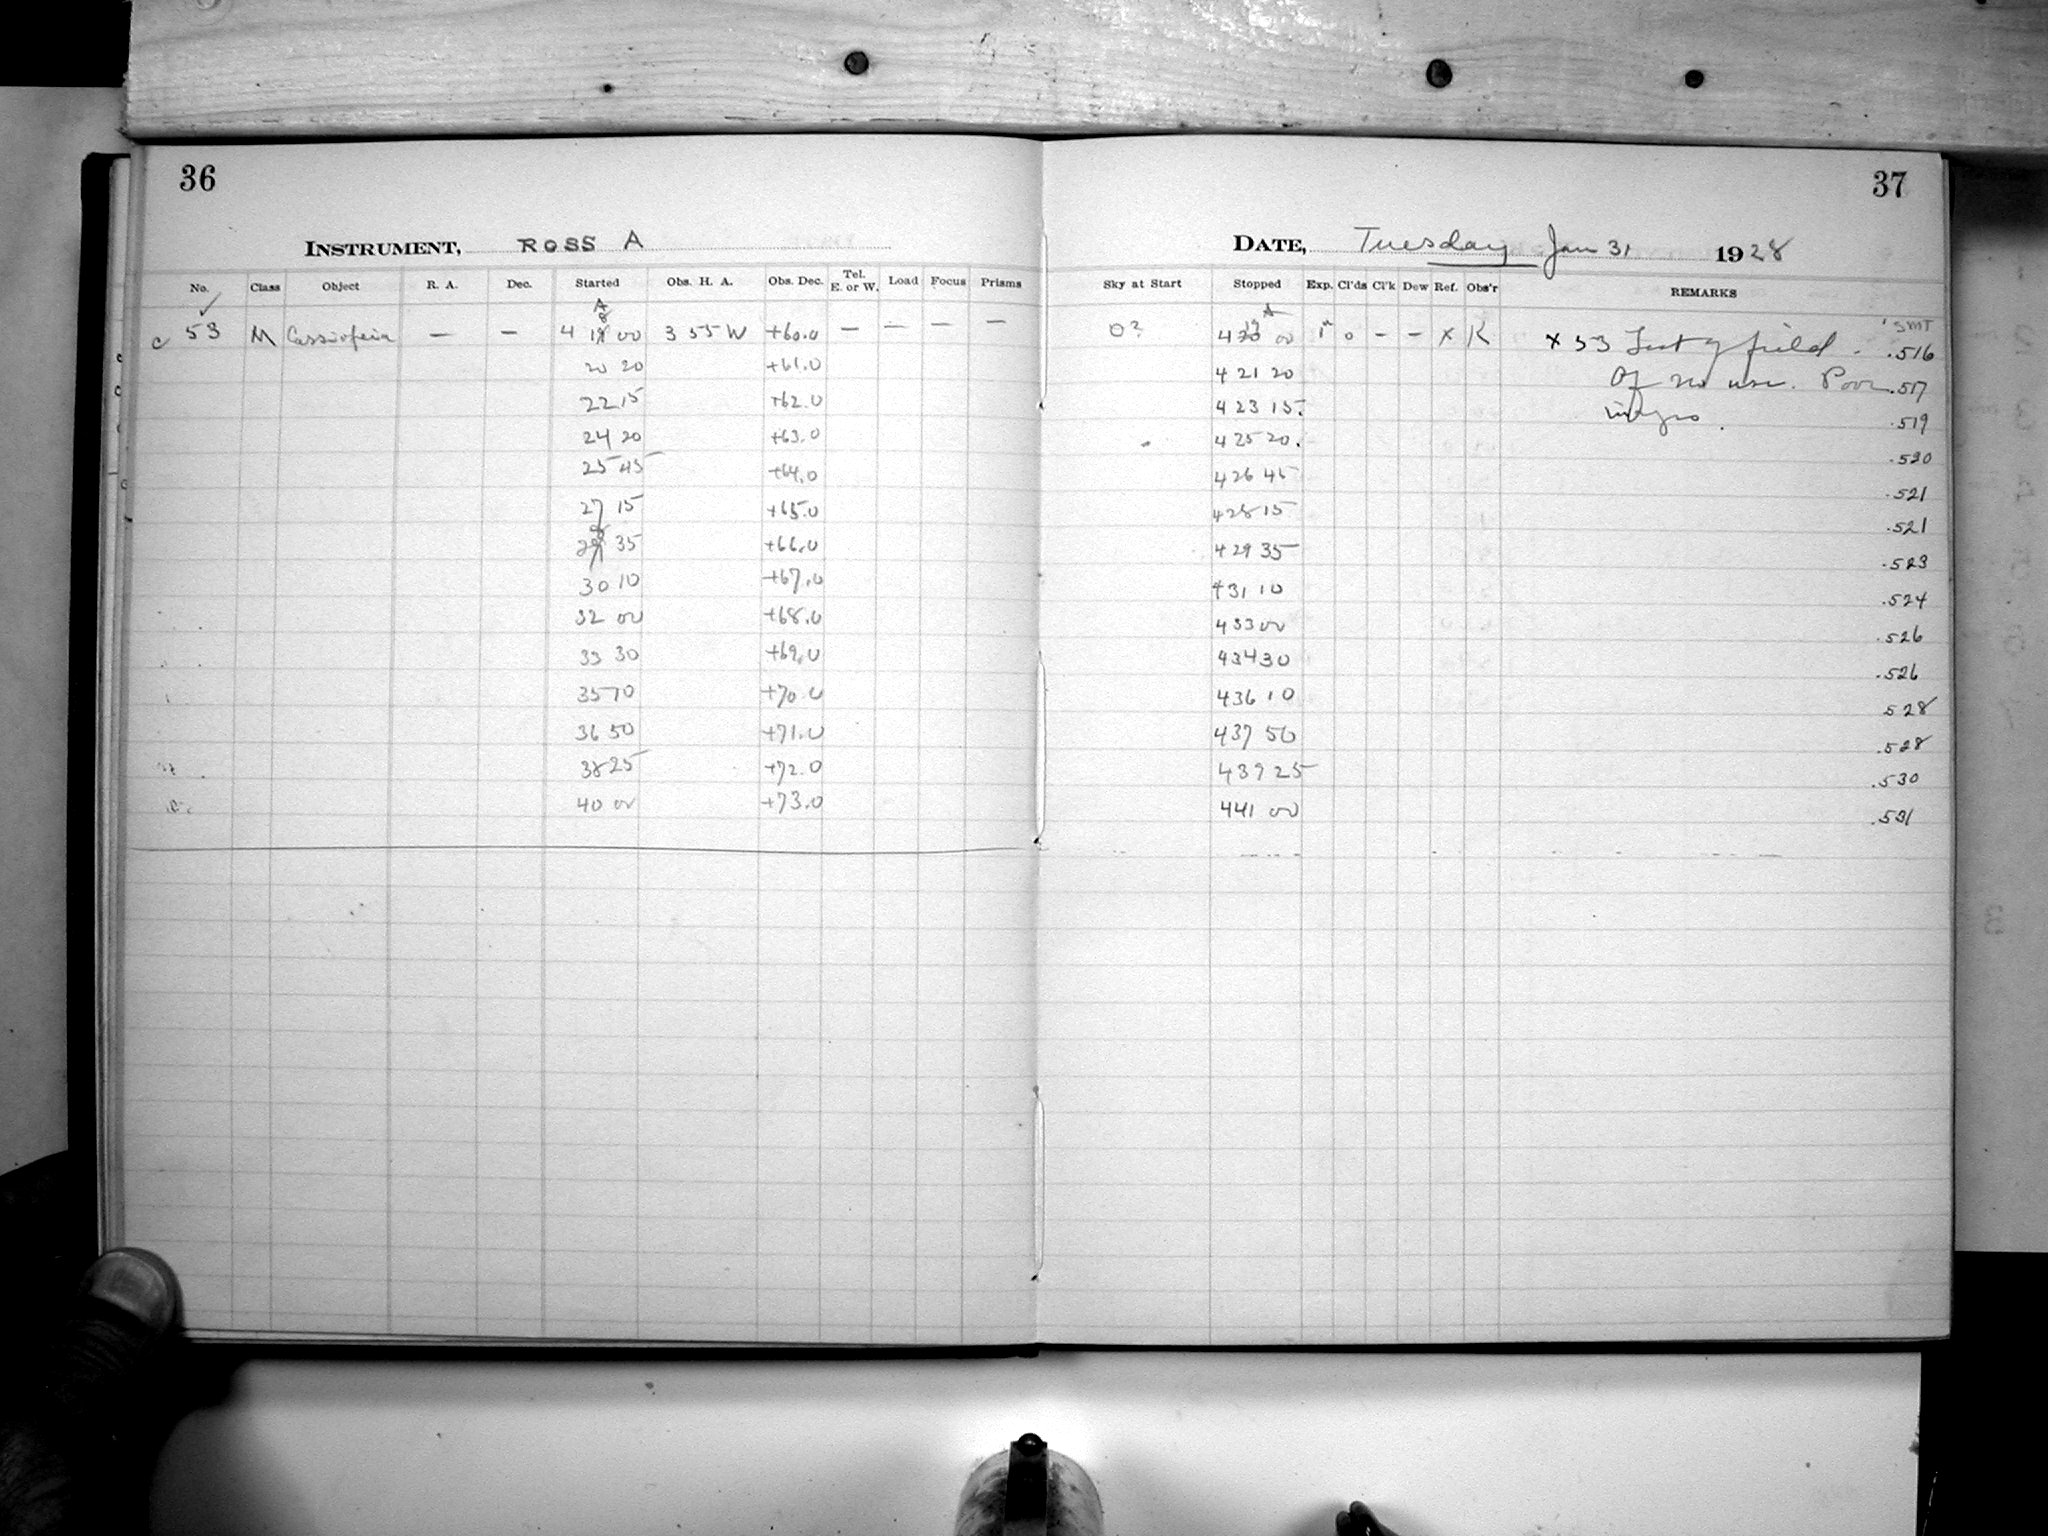 36
INSTRUMENT, ROSS A
No. Class Object R. A. Dec. Started Obs. H. A. Obs. Dec. Tel. E. or W. Load Focus Prisms
c 53 M Cassiopeia — — 4 18 00 3 55 W +60.0 — — — —
20 20 +61.0
22 15 +62.0
24 20 +63.0
25 45 +64.0
27 15 +65.0
28 35 +66.0
30 10 +67.0
32 00 +68.0
33 30 +69.0
35 10 +70.0
36 50 +71.0
38 25 +72.0
40 00 +73.0
37
DATE, Tuesday Jan 31 1928
Sky at Start Stopped Exp. Cl'ds Cl'k Dew Ref. Obs'r REMARKS
'SMT
0? 4 19 00 1 0 - - x K x 53 Test of field. .516
4 21 20 Of no use. Poor .517
4 23 15 .519
4 25 20 .520
4 26 45 .521
4 28 15 .521
4 29 35 .523
4 31 10 .524
4 33 00 .526
4 34 30 .526
4 36 10 528
4 37 50 .528
4 39 25 .530
4 41 00 .531